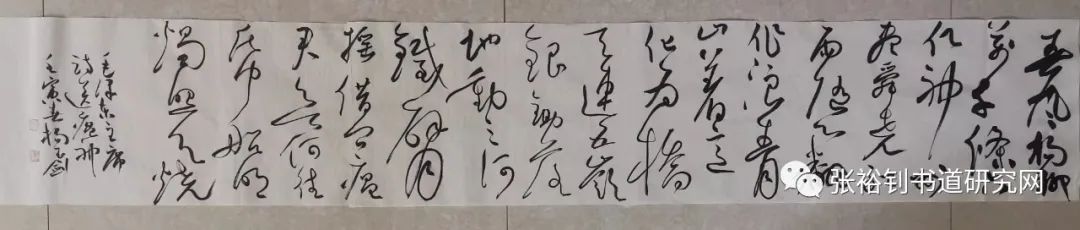 春风杨柳
萬千條六
亿神州
尽舜尧红
雨随心翻
作浪青
山着意
化为橋
天连五嶺
銀鋤落
地動三河
鐵臂
摇借问瘟
君欲何往
帋船明
燭照天燒
毛泽东主席
诗送瘟神
壬寅春杨
张裕钊书道研究网